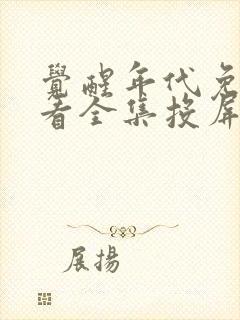 覺醒年代免
看全集投屏
展揚